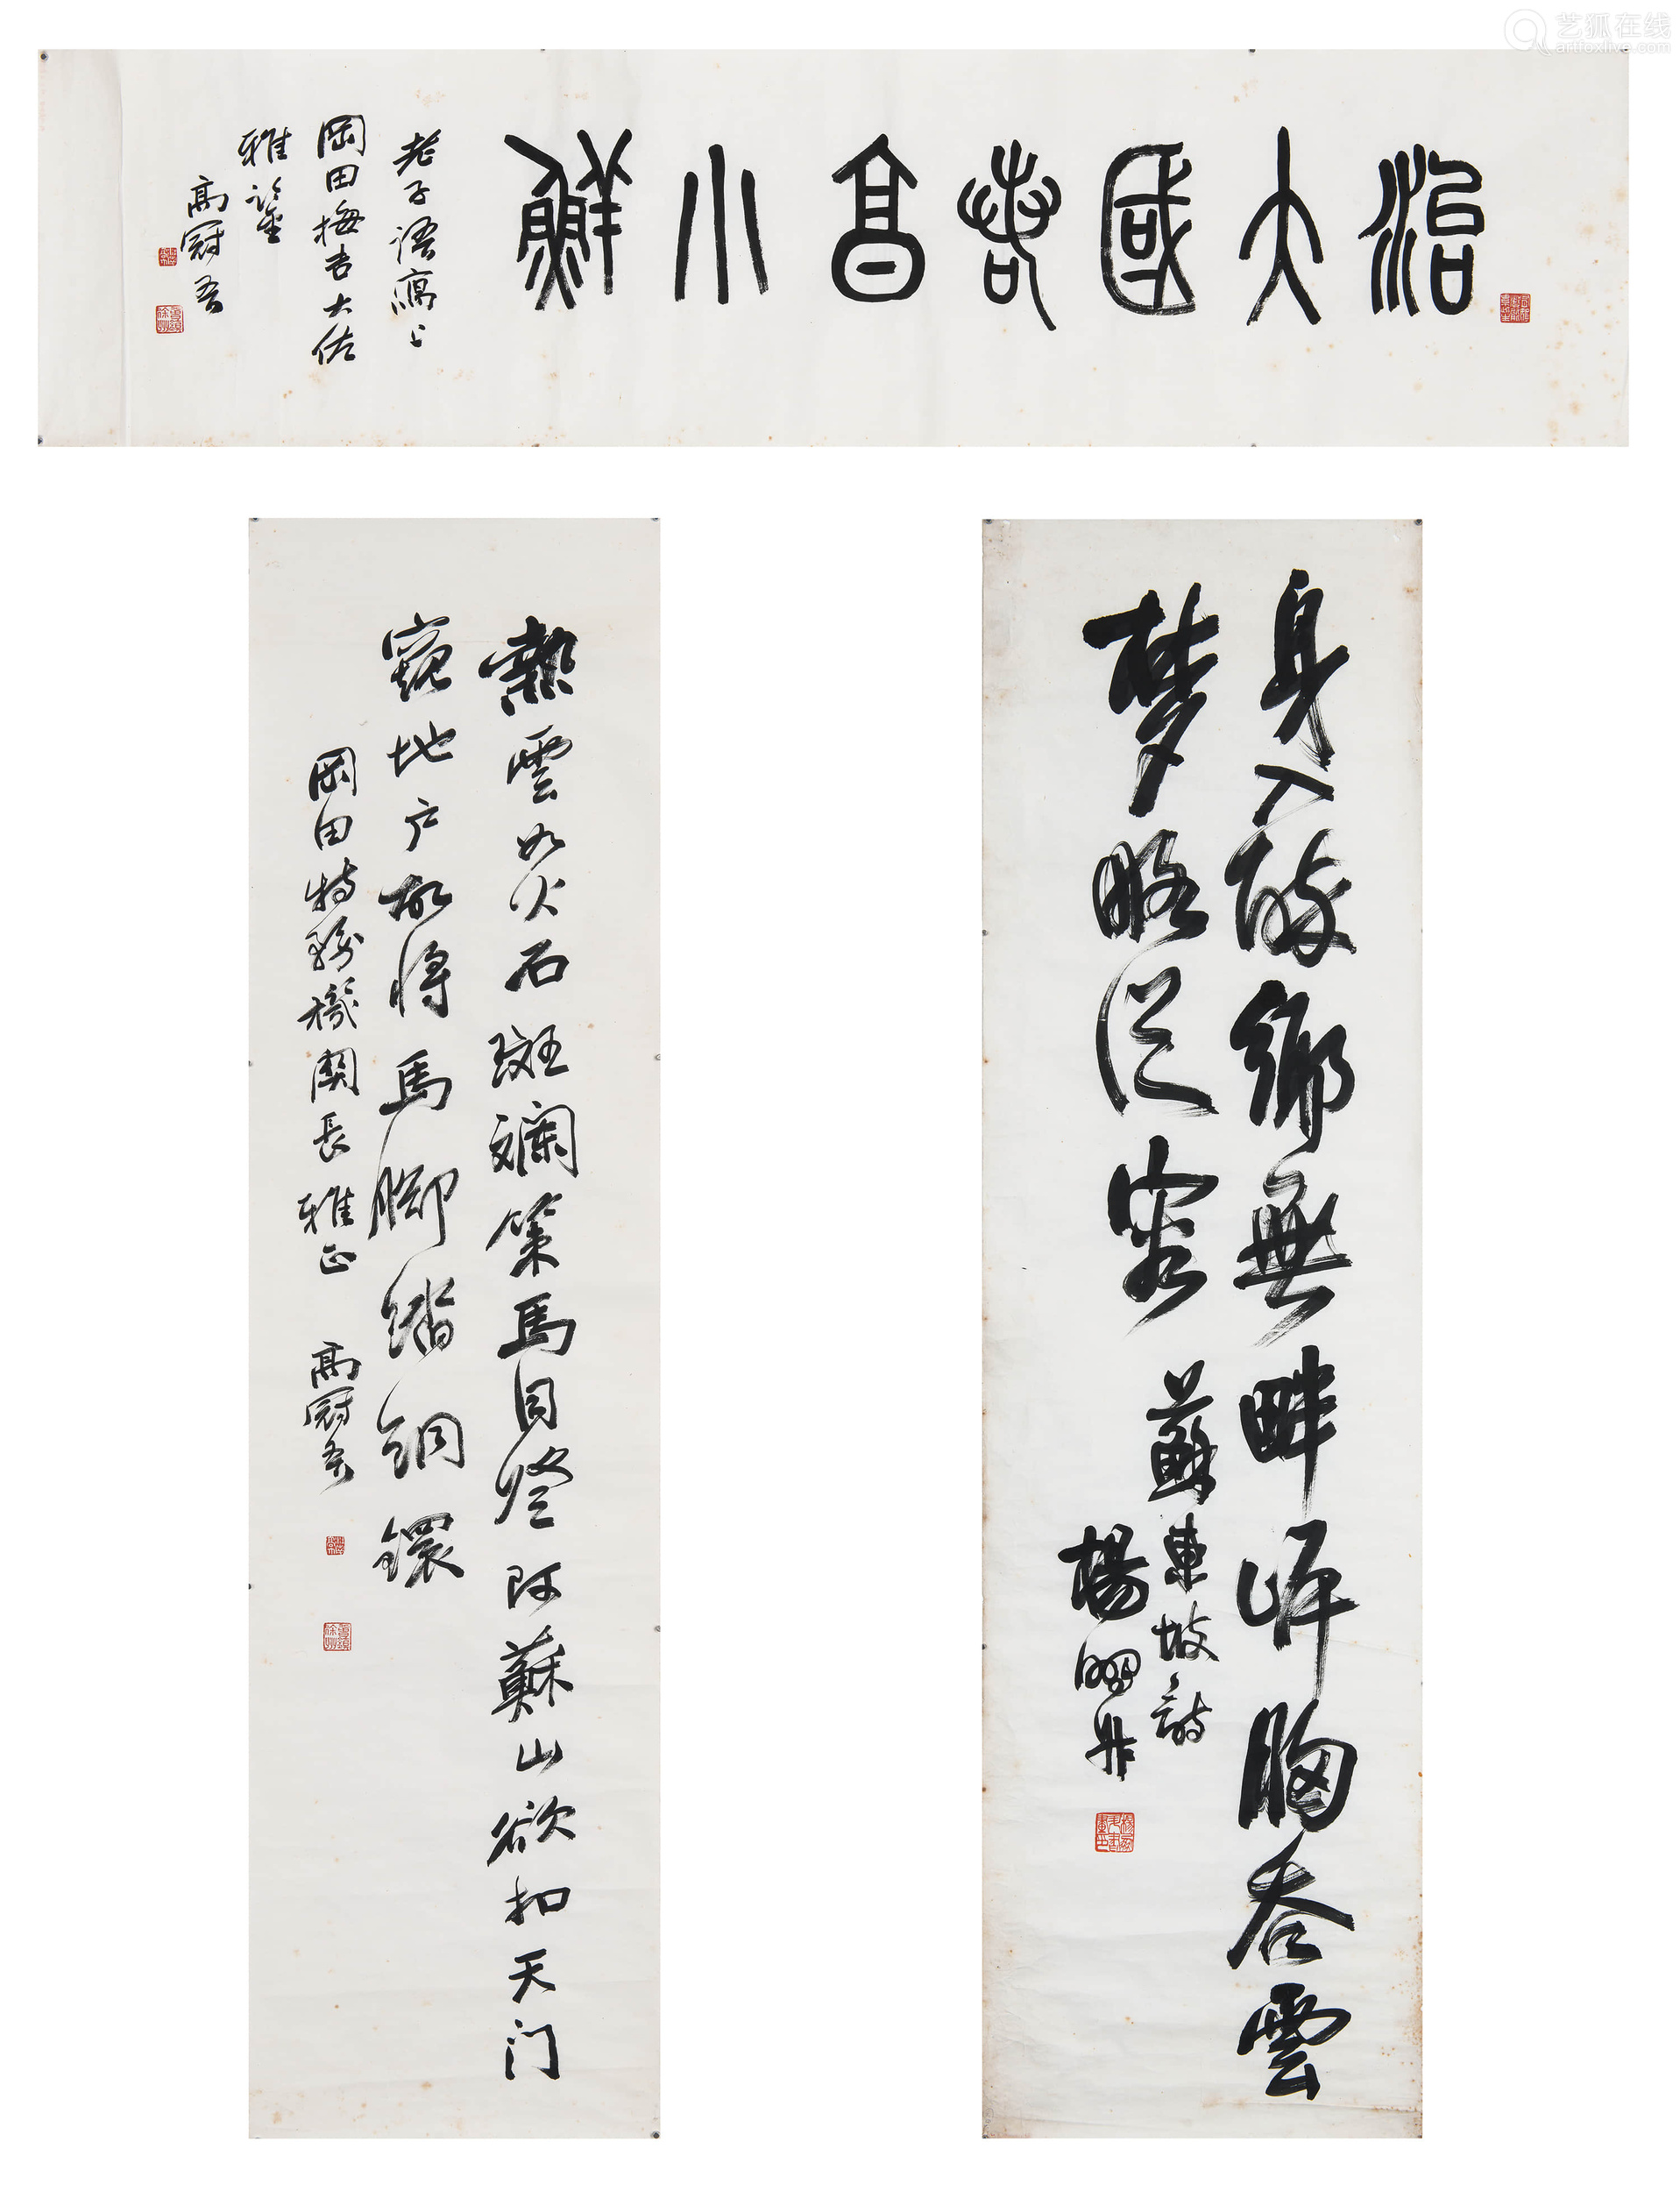 艺狐在线
artfoxlive.com
治大國若亯小鮮
老子語寫上
岡田梅吉大佐
雅鑒
高冠吾
身入醉鄉無畔岸胸吞雲
夢略從容
蘇東坡詩
楊
熱雲如火石斑斕策馬因登阿蘇山欲扣天门
窺地户故將馬脚踏銅鐶
岡田特務機關長雅正 高冠吾